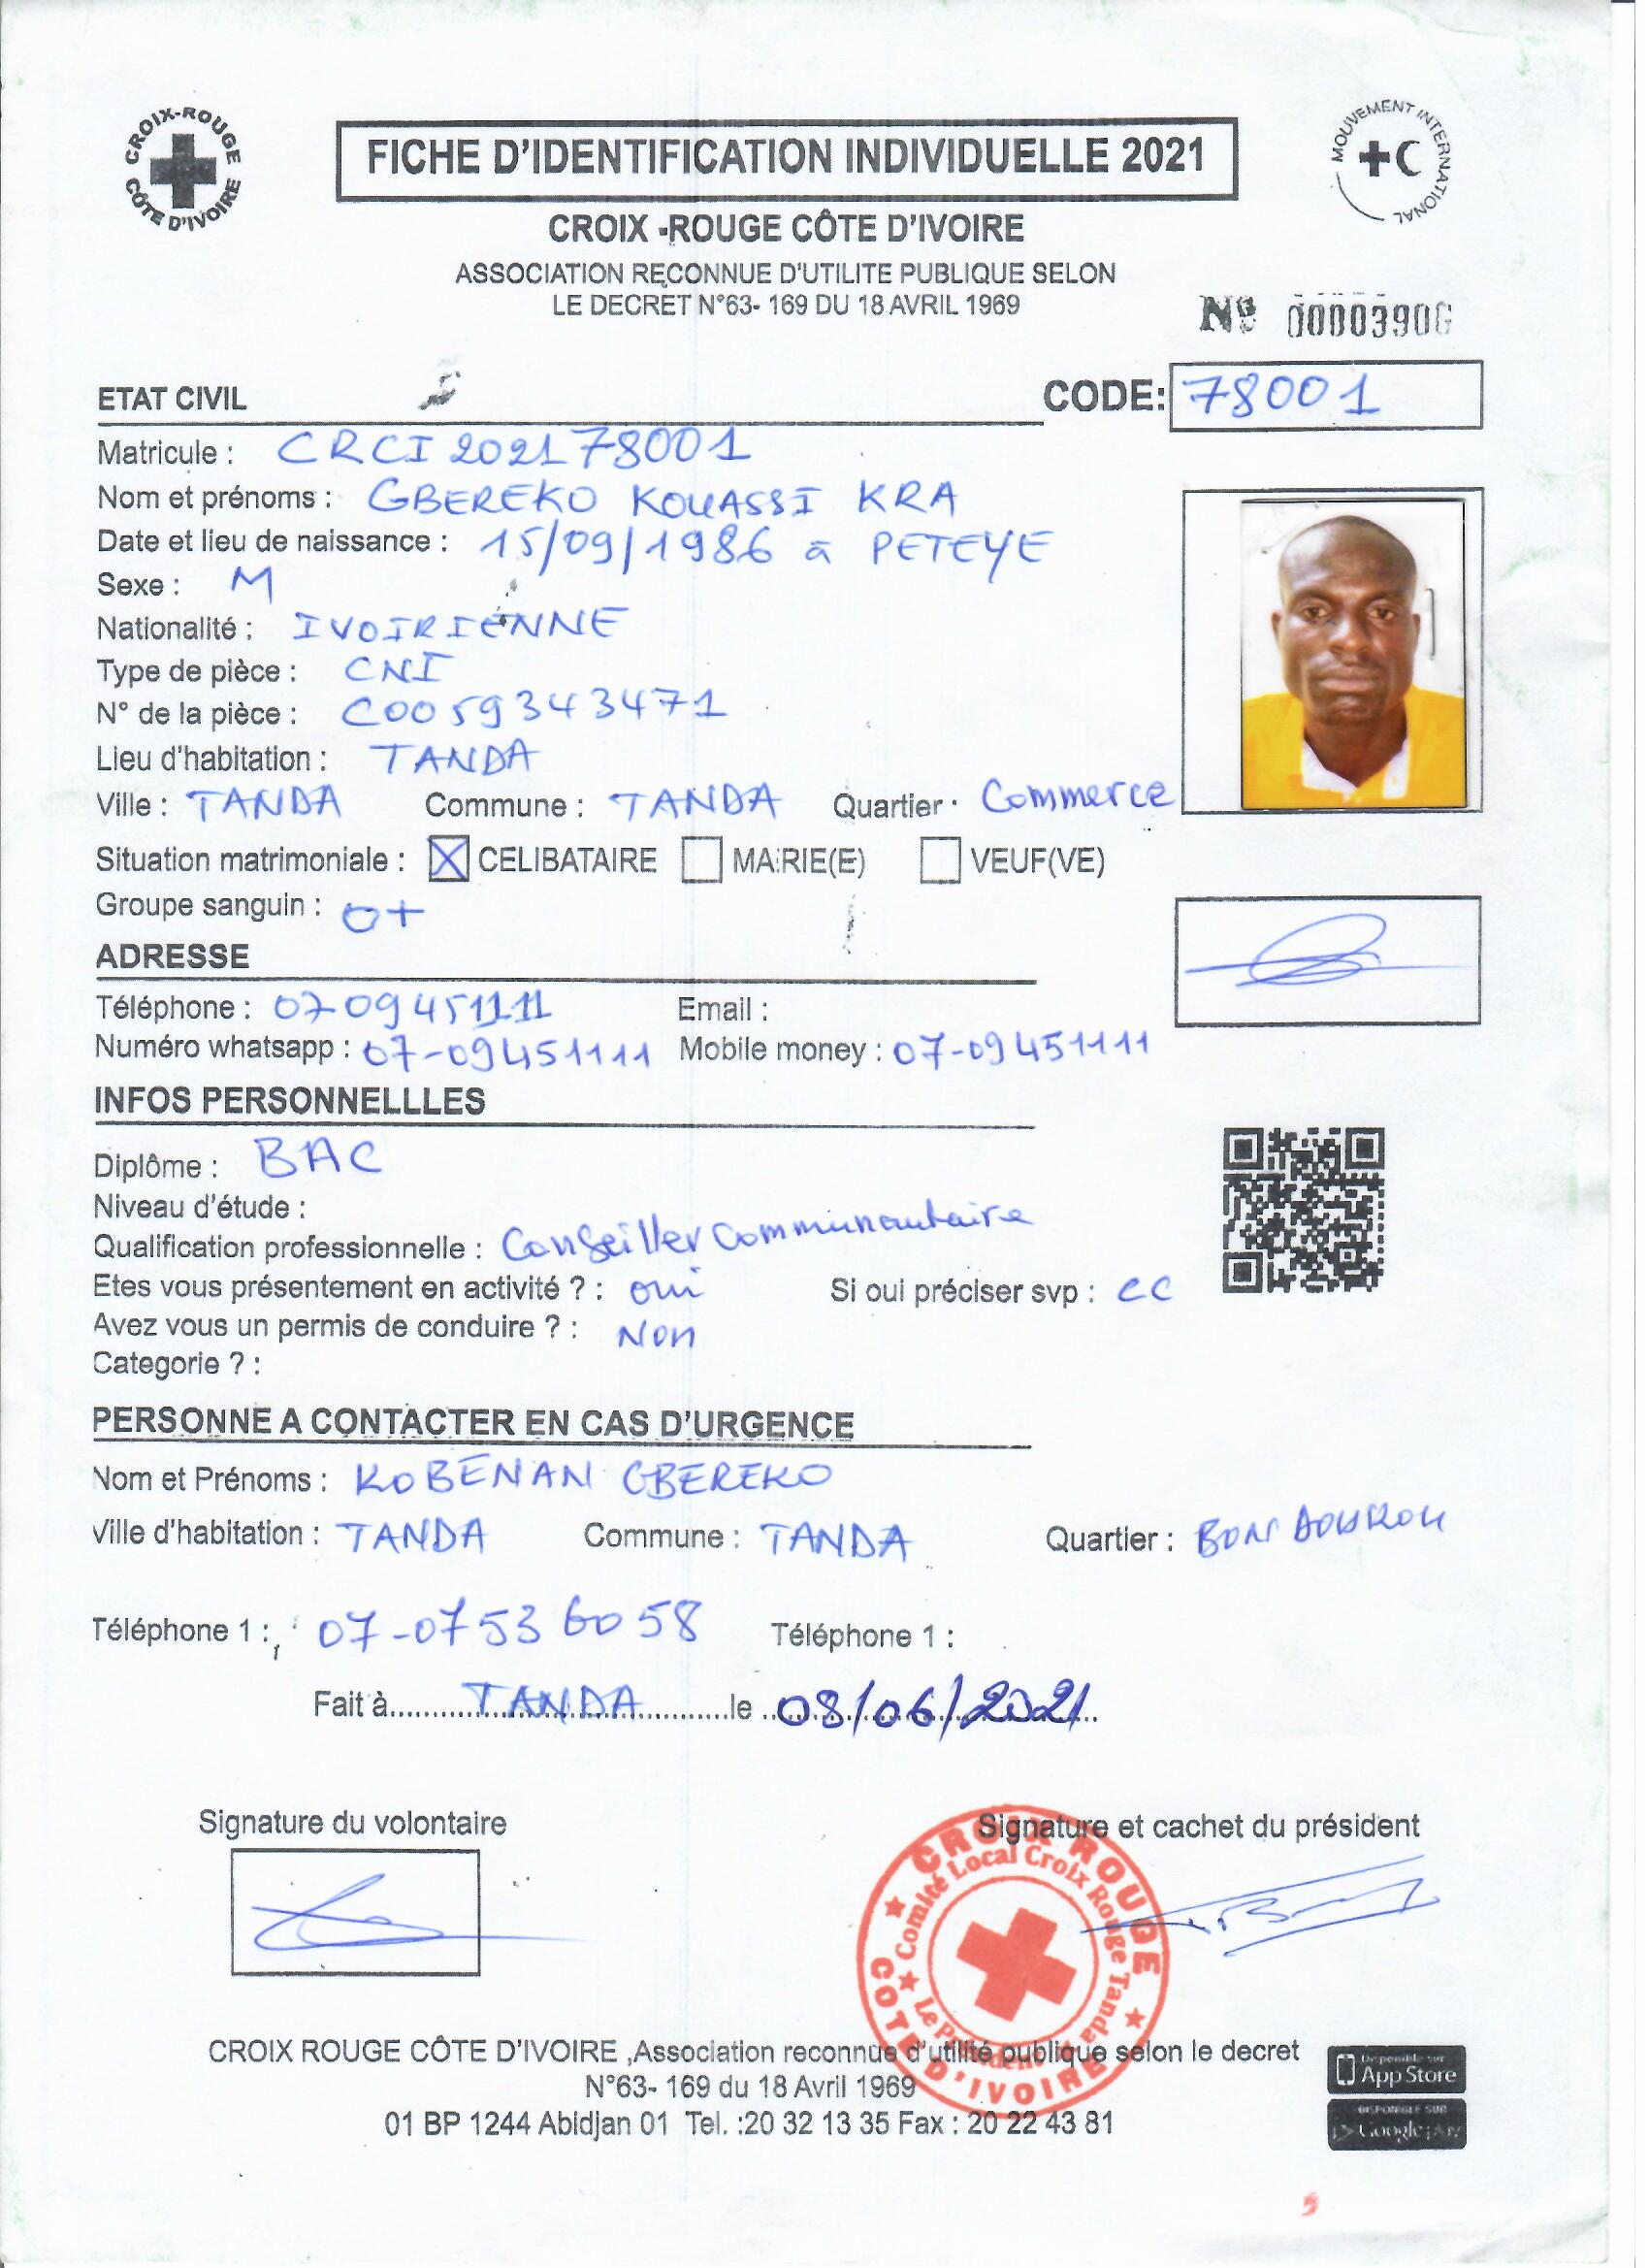 CROIX-ROUGE CÔTE D'IVOIRE
FICHE D'IDENTIFICATION INDIVIDUELLE 2021
MOUVEMENT INTERNATIONAL
CROIX -ROUGE CÔTE D'IVOIRE
ASSOCIATION REÇONNUE D'UTILITE PUBLIQUE SELON
LE DECRET N°63- 169 DU 18 AVRIL 1969
ETAT CIVIL CODE: 78001
Matricule : CRCI 2021 78001
Nom et prénoms : GBEREKO KOUASSI KRA
Date et lieu de naissance : 15/09/1986 à PETEYE
Sexe : M
Nationalité : IVOIRIENNE
Type de pièce : CNI
N° de la pièce : C0059343471
Lieu d'habitation : TANDA
Ville : TANDA Commune : TANDA Quartier : Commerce
Situation matrimoniale : X CELIBATAIRE MARIE(E) VEUF(VE)
Groupe sanguin : O+
ADRESSE
Téléphone : 07-09451111 Email :
Numéro whatsapp : 07-09451111 Mobile money : 07-09451111
INFOS PERSONNELLLES
Diplôme : BAC
Niveau d'étude :
Qualification professionnelle : Conseiller Communautaire
Etes vous présentement en activité ? : oui Si oui préciser svp : CC
Avez vous un permis de conduire ? : Non
Categorie ? :
PERSONNE A CONTACTER EN CAS D'URGENCE
Nom et Prénoms : KOBENAN GBEREKO
Ville d'habitation : TANDA Commune : TANDA Quartier :
Téléphone 1 : 07-07536058 Téléphone 1 :
Fait à TANDA le 08/06/2021
Signature du volontaire Signature et cachet du président
CROIX ROUGE
Comité Local Croix Rouge Tanda
Le Président
COTE D'IVOIRE
CROIX ROUGE CÔTE D'IVOIRE ,Association reconnue d'utilité publique selon le decret
N°63- 169 du 18 Avril 1969
01 BP 1244 Abidjan 01 Tel. :20 32 13 35 Fax : 20 22 43 81
Disponible sur
App Store
DISPONIBLE SUR
Google play